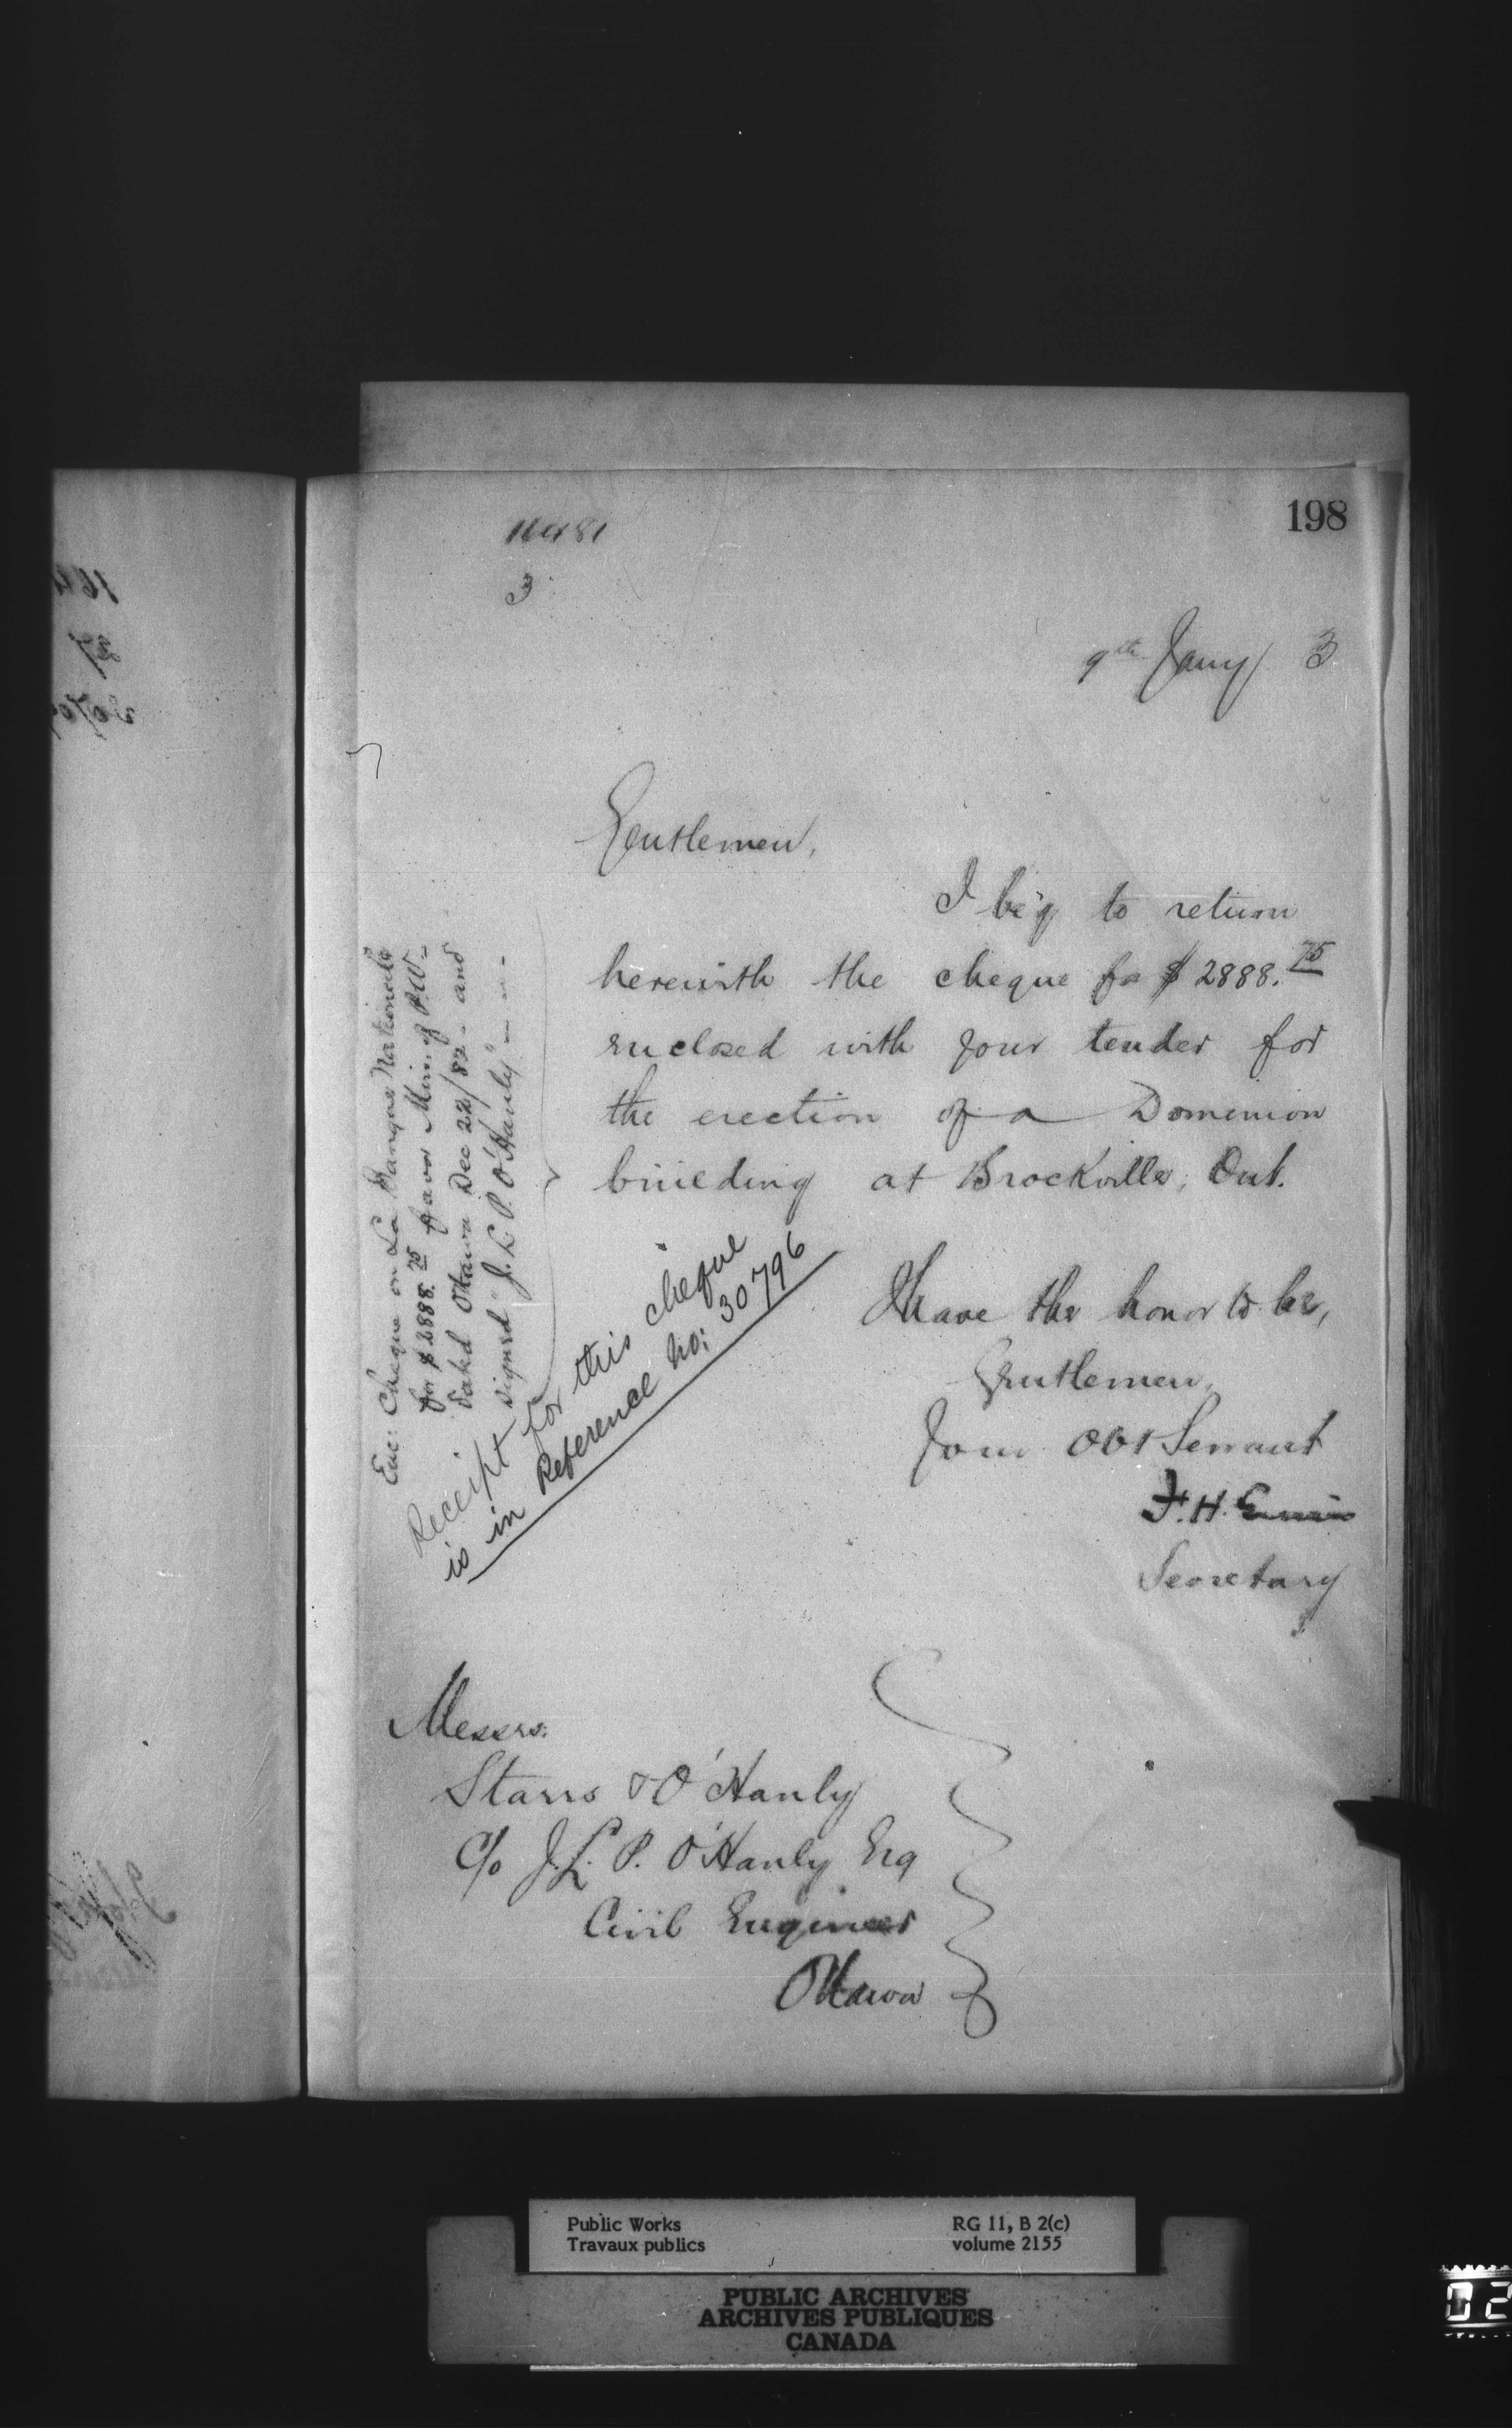 198
16481
3
9th Jany/ 3
Gentlemen,
I beg to return
herewith the cheque for $2888.75
enclosed with your tender for
the erection of a Dominion
building at Brockville, Ont.
I have the honor to be,
Gentlemen,
Your Obt Servant
F. H. Ennis
Secretary
Enc: Cheque on La Banque Nationale
for $2888.75 favor Min: of P.W-
dated Ottawa Dec 22/82 - and
signed "J. L. P. O'Hanly" - - -
Receipt for this cheque
is in Reference No: 30796
Messrs:
Starrs & O'Hanly
c/o J. L. P. O'Hanly Esq
Civil Engineer
Ottawa
Public Works
Travaux publics
RG 11, B 2(c)
volume 2155
PUBLIC ARCHIVES
ARCHIVES PUBLIQUES
CANADA
02